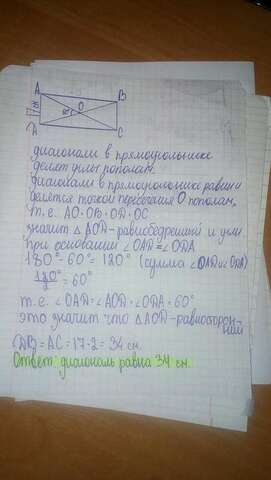 A
B
O
Д
C
диагонали в прямоугольнике
делят углы пополам.
диагонали в прямоугольнике равны и
делятся точкой пересечения О пополам,
т.е. АО=ОВ=ОД=ОС
значит △ АОД-равнобедренный и углы
при основании ∠ОАД=∠ОДА
180°-60°=120° (сумма ∠ОАД и ∠ОДА)
120°/2=60°
т.е. ∠ОАД=∠АОД=∠ОДА=60°
это значит что △АОД-равносторон-
ний
ДВ=АС=17·2=34 см.
Ответ: диагональ равна 34 см.